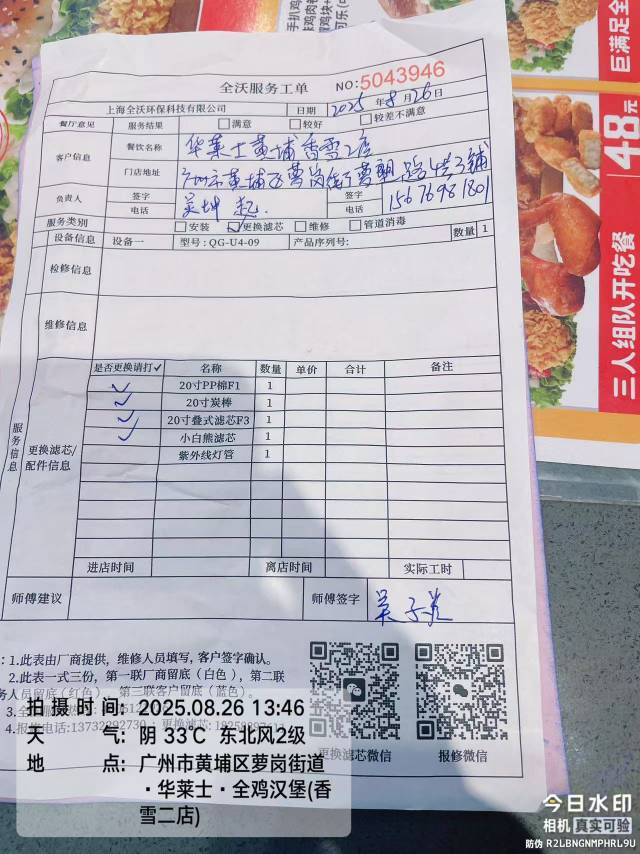 全沃服务工单
NO:5043946
上海全沃环保科技有限公司 日期 2025年8月26日
餐厅意见 服务结果 □满意 □较好 □较差不满意
客户信息 餐饮名称 华莱士黄埔香雪2店
门店地址 广州市黄埔区萝岗街萝塱路
负责人 签字 签字
电话 电话 15676981801
服务类别 □安装 ☑更换滤芯 □维修 □管道消毒
设备信息 设备一 型号:QG-U4-09 产品序列号: 数量 1
检修信息
维修信息
服务信息
更换滤芯/配件信息
是否更换请打✓ 名称 数量 单价 合计 备注
✓ 20寸PP棉F1 1
✓ 20寸炭棒 1
✓ 20寸叠式滤芯F3 1
✓ 小白熊滤芯 1
紫外线灯管 1
进店时间 离店时间 实际工时
师傅建议 师傅签字
:1.此表由厂商提供，维修人员填写，客户签字确认。
2.此表一式三份，第一联厂商留底（白色），第二联
务人员留底(红色），第三联客户留底（蓝色）。
3.
4.报修电话:13732292730；更换滤芯:
更换滤芯微信 报修微信
拍摄时间: 2025.08.26 13:46
天气: 阴 33℃ 东北风2级
地点: 广州市黄埔区萝岗街道
·华莱士·全鸡汉堡(香
雪二店)
巨满足全
48元
三人组队开吃餐
今日水印
相机 真实可验
防伪 R2LBNGNMPHRL9U